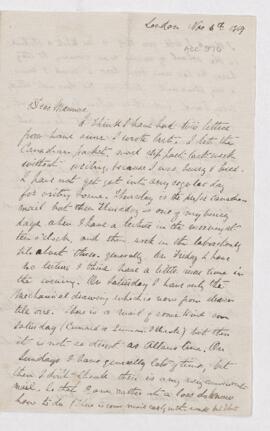 London Nov 6th 1869
Dear Mamma
I think I have had two letters
from home since I wrote last. I let the
Canadian packet, word slip past last week
without writing because I was busy
I have not yet got into any regular day
for writing home. Thursday is the proper Canadian
mail but then Thursday is one of my busy
days when I have a lecture in the morning at
ten o'clock, and then work in the laboratory
till about three generally. On Friday I have
no lecture I think have a little more time in
the evening. On Saturday I have only the
Mechanical drawing which is now from eleven
till one. There is a mail of some kind on
Saturday (Cunard or Inman I think) but then
it is not so direct as Allans line. On
Sundays I have generally lots of time, but
then I don't think there is any very convenient
mail. So that I am rather at a loss to know
how to do